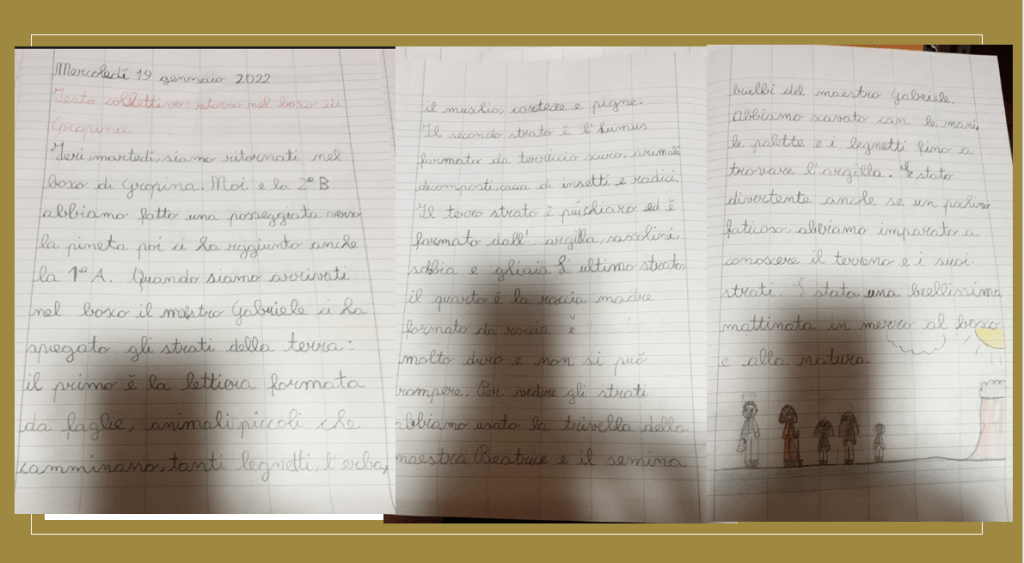 Mercoledì 19 gennaio 2022
Testo collettivo: ritorno nel bosco di
Gropina
Ieri, martedì, siamo ritornati nel
bosco di Gropina. Noi e la 2ª B
abbiamo fatto una passeggiata verso
la pineta poi ci ha raggiunto anche
la 1ª A. Quando siamo arrivati
nel bosco il maestro Gabriele ci ha
spiegato gli strati della terra:
il primo è la lettiera formata
da foglie, animali piccoli che
camminano, tanti legnetti, l'erba,
il muschio, cortecce e pigne.
Il secondo strato è l'humus
formato da terriccio scuro, animali
decomposti, cacca di insetti e radici.
Il terzo strato è più chiaro ed è
formato dall' argilla, sassolini,
sabbia e ghiaia. L'ultimo strato,
il quarto è la roccia madre
formato da roccia è
molto dura e non si può
rompere. Per vedere gli strati
abbiamo usato la trivella della
maestra Beatrice e il semina
bulbi del maestro Gabriele.
Abbiamo scavato con le mani,
le palette e i legnetti fino a
trovare l'argilla. È stato
divertente anche se un pochino
faticoso, abbiamo imparato a
conoscere il terreno e i suoi
strati. È stata una bellissima
mattinata in mezzo al bosco
e alla natura.